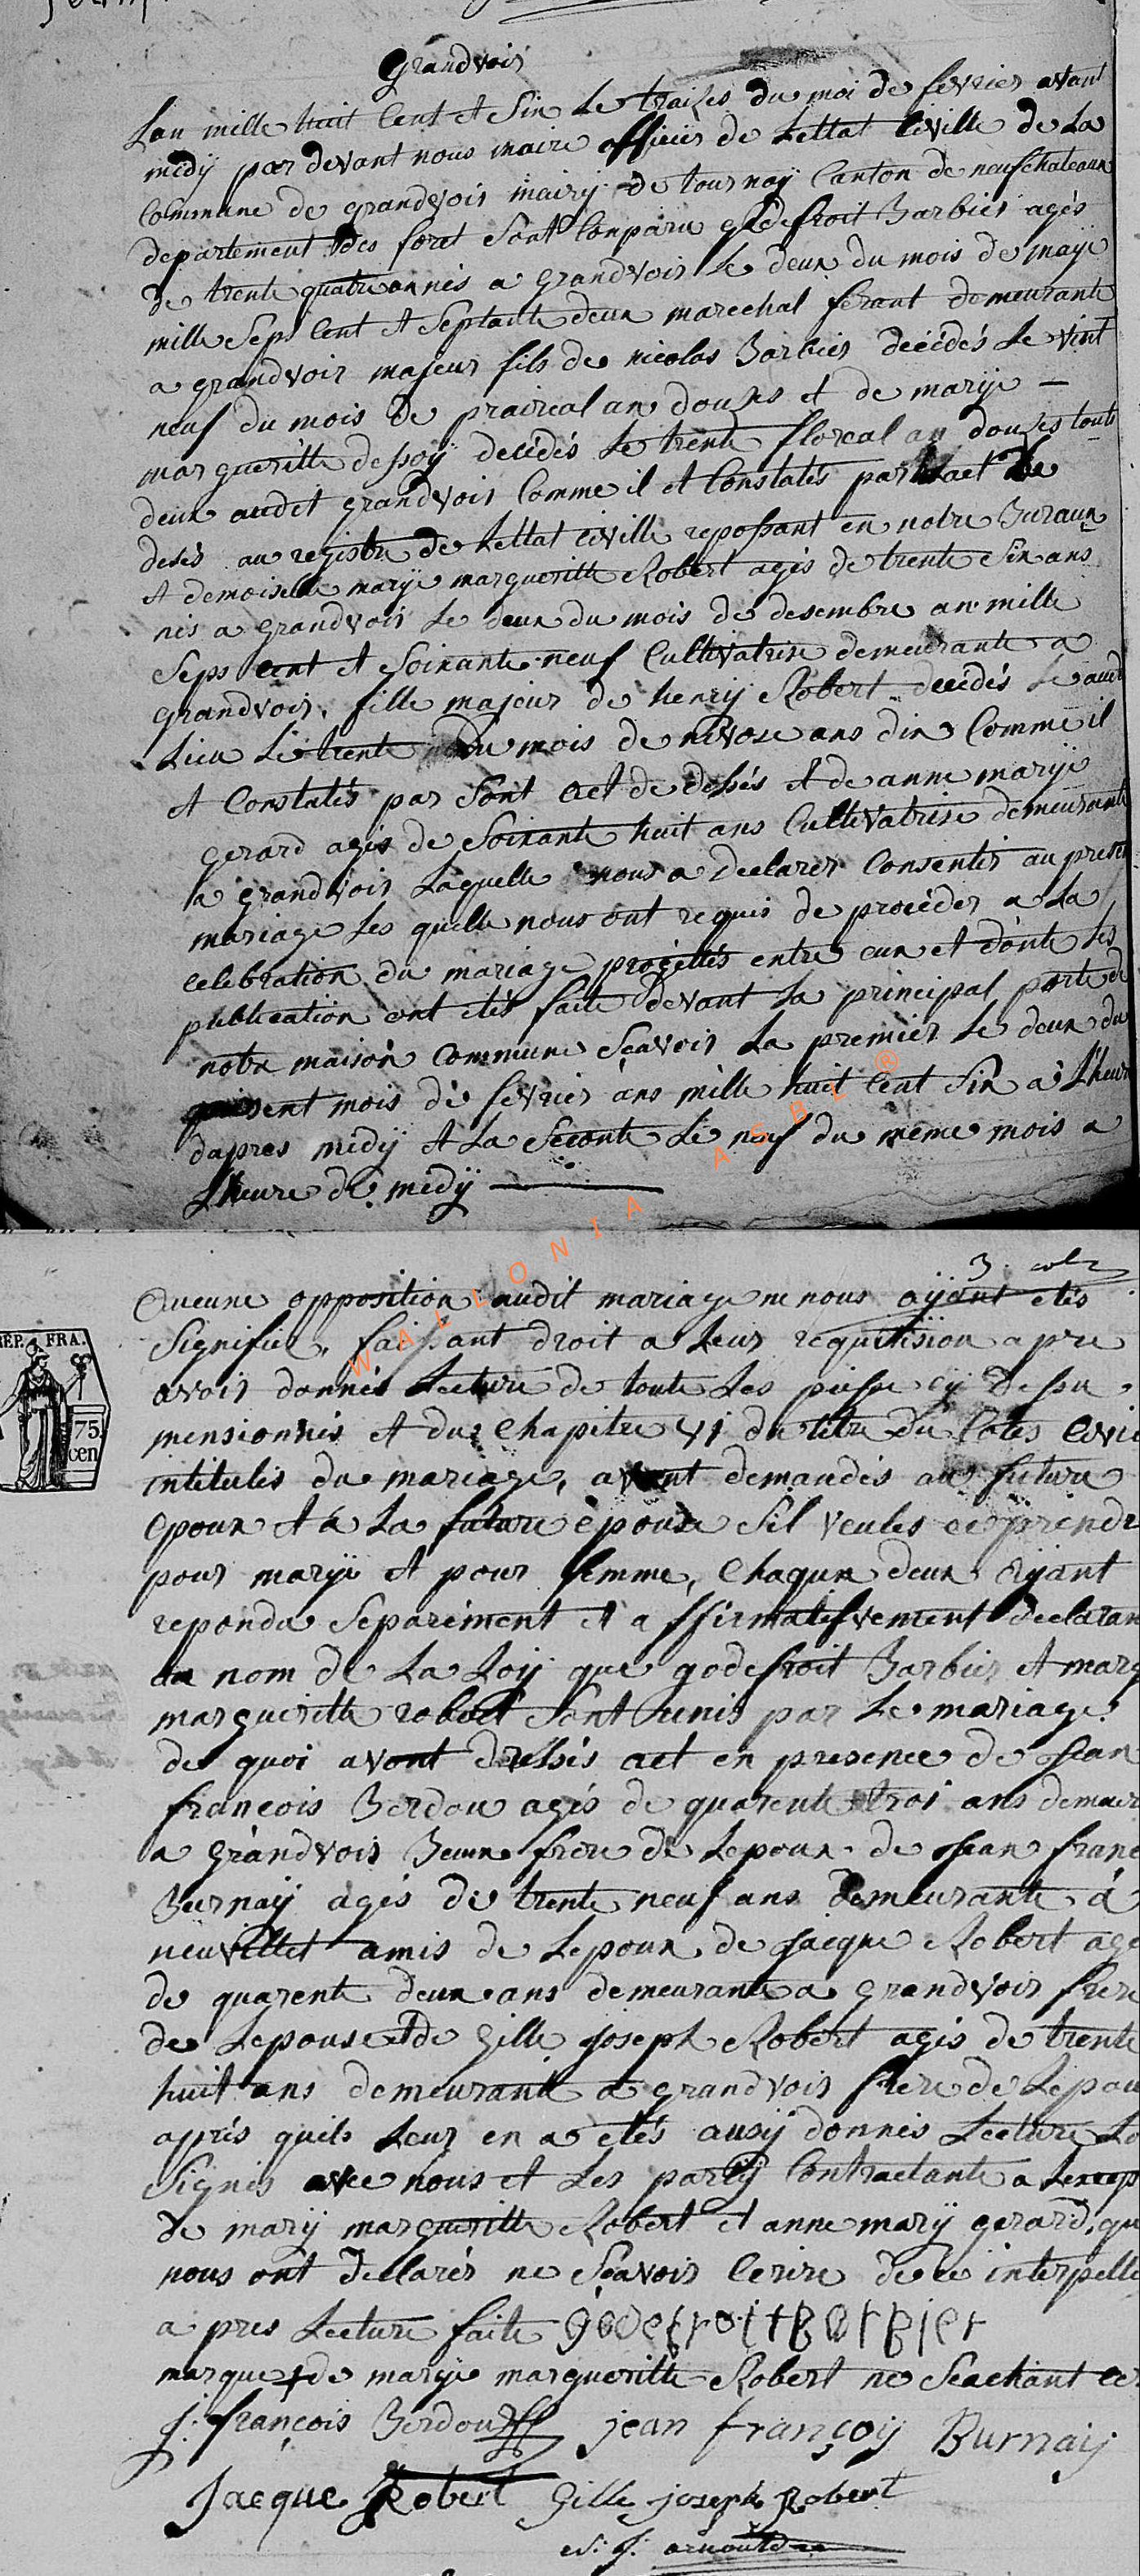 Grandvoir
Lan mille huit Cent et Six Le traizes du moi de fevrier avant
midÿ par devant nous maire officier de Lettat Civille de La
Commune de grandvoir mairÿ de tournaÿ Canton de neufchateaux
departement des foret Sont Conparu godefroit Barbier agés
de trente quatre an nés a grandvoir Le deux du mois de maÿe
mille Sep Cent et Septante deux marechal ferant demeurante
a grandvoir majeur fils de nicolas Barbier décédés Le vint
neuf du mois de prairéal an douzes et de marÿe —
margueritte dessoÿ décédés Le trente floreal an douzes touts
deux audit grandvoir Comme il et Constatés par act de
desés au registre de Lettat Civille repossant en notre Buraux
et demoiselle marÿe margueritte Robert agés de trente Six ans
nés a grandvoir Le deux du mois de desembre an mille
Seps cent et Soixante neuf Cultivatrise demeurante a
grandvoir, fille majeur de henrÿ Robert decédés Le audit
Lieu Le trente du mois de nivose ans dix Comme il
et Constatés par Sont act de désés et de anne marÿe
gerard agés de Soixante huit ans Cultivatrise demeurante
a grandvoir Laquelle nous a Declarer Consentir au present
mariage Les quelle nous ont requis de procéder a La
celebration du mariage projettés entre eux et donte Les
publication ont étés faite devant La principal porte de
notre maison Commune Seavoir La premier Le deux du
present mois de fevrier ans mille huit Cent Six a L'heure
d'apres midÿ et La Seconte Le neuf du même mois a
Lheure de midÿ
WALLONIA ASBL ®
3 role
Aucune opposition audit mariage ne nous aÿant étés
Signifiée, faissant droit a Leur requitision a pre
avoir donnés Lecture de toute Les piesse cÿ dessu
mensionnés et du Chapitre VI du titre du Codes Civil
REP. FRA.
75
cen
intitulés du mariage, avont demandés au future
epoux et a La future épouse Sil veules ce prendre
pour marÿe et pour femme, Chaqun deux aÿant
repondu Séparément et affirmatifvement declaran
au nom de La Loÿ que godefroit Barbier et marÿ
margueritte robert Sont unis par Le mariage
de quoi avont dressés act en presence de Jean
francois Berdou agés de quarente troi ans demeur
a grandvoir Beaux frere de Lepoux de Jean franc
Burnaÿ agés de trente neuf ans demeurante a
neuvillet amis de Lepoux de Jacque Robert age
de quarente deux ans demeurante a grandvoir frere
de Lepouse et de Gille Joseph Robert agés de trente
huit ans demeurante a grandvoir frere de Lepou
aprés quils Leur en a étés ausÿ donnés Lecture Lo
Signés avec nous et Les partÿ Contractante a Lexcep
de marÿ margueritte Robert et anne marÿ gerard, qu
nous ont declarés ne Seavoir Ecrire de ce interpelle
a pres Lecture faite godefroit Barbier
marque + de marÿe margueritte Robert ne Seachant ec
j: françois Berdoux jean françoÿ Burnaÿ
Jacque Robert Gille joseph Robert
j: arnould